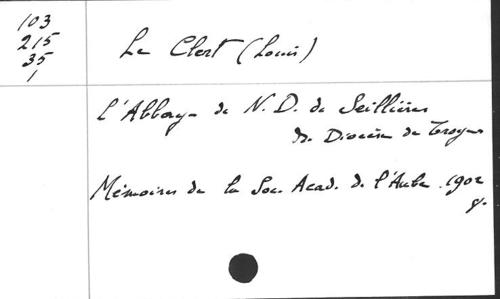 103
215
35
1
Le Clert (Louis)
L'Abbaye de N. D. de Seillières
du Diocèse de Troyes
Mémoires de la Soc. Acad. de l'Aube. 1902